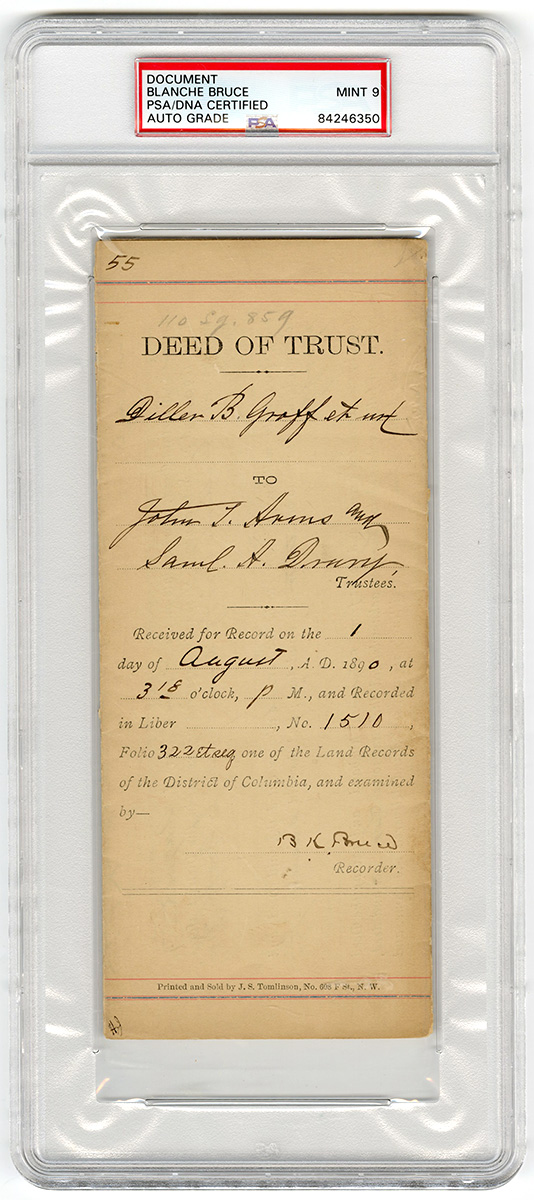 DOCUMENT
BLANCHE BRUCE MINT 9
PSA/DNA CERTIFIED
AUTO GRADE PSA 84246350
55
110 Sq. 859
DEED OF TRUST.
Diller B. Groff et ux
TO
John T. Arms and
Saml. A. Drury,
Trustees.
Received for Record on the 1
day of August, A. D. 1890, at
3 18 o'clock, P M., and Recorded
in Liber , No. 1510,
Folio 322 et seq one of the Land Records
of the District of Columbia, and examined
by—
B K Bruce
Recorder.
Printed and Sold by J. S. Tomlinson, No. 608 F St., N. W.